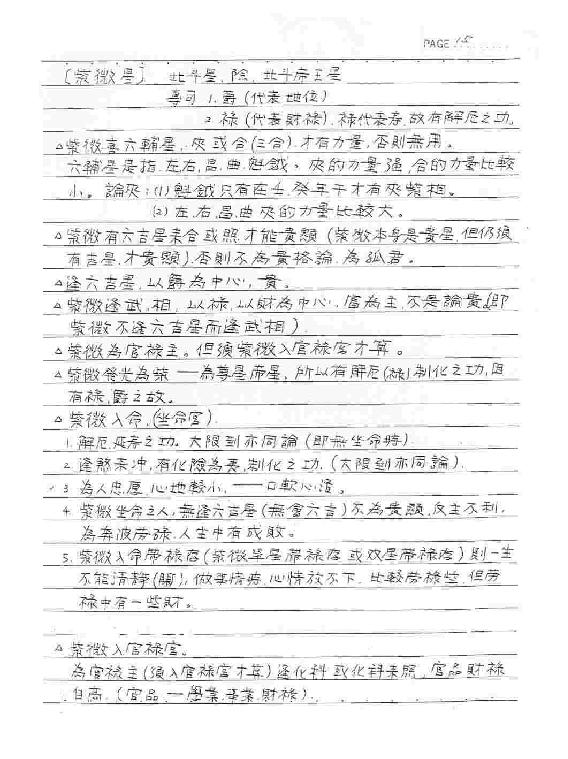 PAGE 15
[紫微星] 北斗星,陰,北斗帝王星
專司 1.爵(代表地位)
2.祿(代表財祿).祿代表壽,故有解厄之功.
△紫微喜六輔星,夾或合(三合)才有力量,否則無用。
六輔星是指,左右,昌,曲,魁鉞、夾的力量強,合的力量比較
小。論夾:(1)魁鉞只有在壬、癸年干才有夾紫相。
(2)左,右,昌,曲夾的力量比較大。
△紫微有六吉星來合或照才能貴顯(紫微本身是貴星,但仍須
有吉星,才貴顯).否則不為貴格論,為孤君。
△逢六吉星,以爵為中心,貴。
△紫微逢武,相,以祿,以財為中心,富為主,不是論貴(即
紫微不逢六吉星而逢武相).
△紫微為官祿主。但須紫微入官祿宮才算。
△紫微發光為紫——為尊星帝星,所以有解厄(祿)制化之功,因
有祿,爵之故。
△紫微入命,(坐命宮).
1.解厄,延壽之功。大限到亦同論(即無坐命時).
2.逢煞來沖,有化險為夷,制化之功.(大限到亦同論).
3 為人忠厚,心地較小,——口軟心濆。
4.紫微坐命之人,無逢六吉星(無會六吉)不為貴顯,反主不利,
為奔波勞碌,人生中有成敗。
5.紫微入命帶祿存(紫微單星帶祿存或双星帶祿存)則一生
不能清靜(閒),做事情時,心情放不下,比較勞祿些,但勞
祿中有一些財。
△紫微入官祿宮。
為官祿主(須入官祿宮才算)逢化科或化科來照,官品財祿
自高.(官品——學業,事業,財祿).